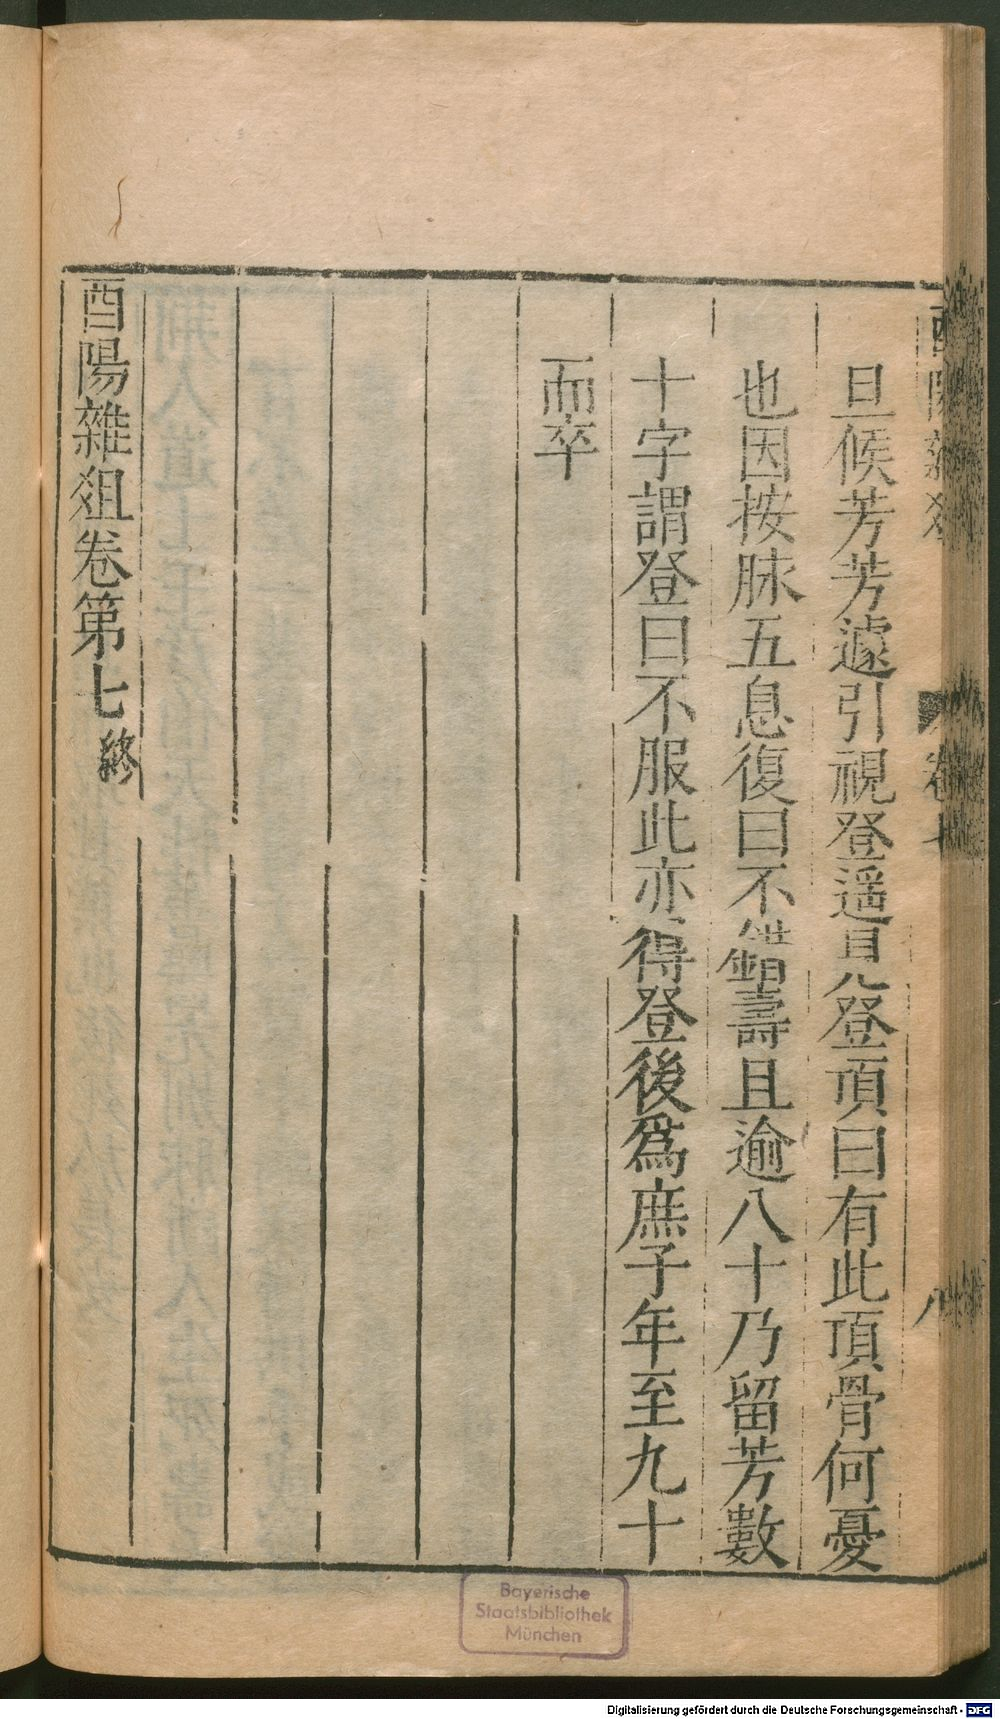 旦候芳芳遽引視登遥見登頂曰有此頂骨何憂
也因按脉五息復曰不錯壽且逾八十乃留芳數
十字謂登曰不服此亦得登後爲庶子年至九十
而卒
酉陽雜俎卷第七終
卷七
八
Bayerische
Staatsbibliothek
München
Digitalisierung gefördert durch die Deutsche Forschungsgemeinschaft - DFG